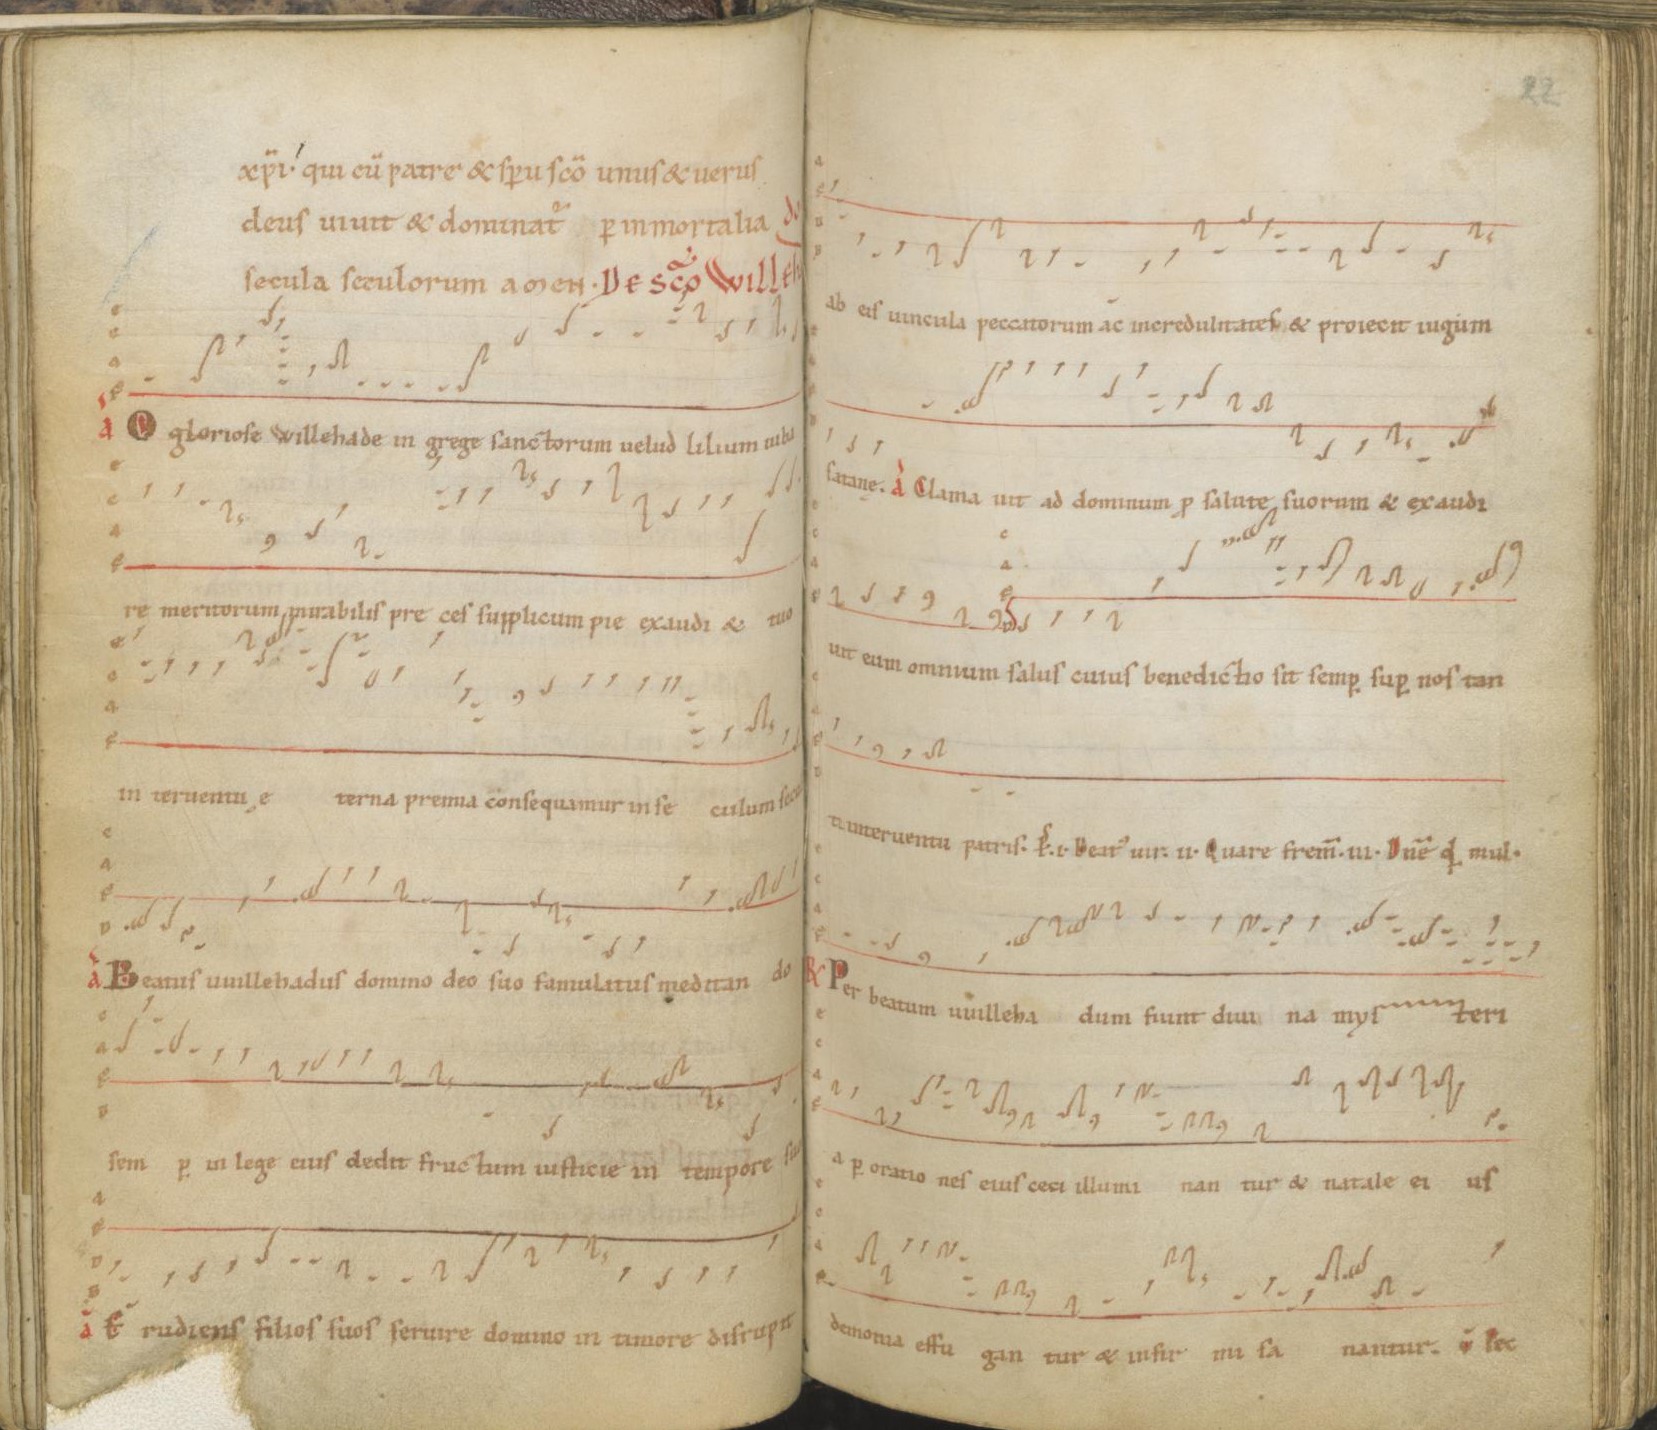 xp̄i. qui cū patre & sp̄u sc̄o unus & uerus
deus uiuit & dominat᷑ p̄ inmortalia
secula seculorum amen. De sc̄o Willeh
a O gloriose willehade in grege sanctorum uelud lilium iuba
re meritorum mirabilis pre ces supplicum pie exaudi & tuo
in teruentu e terna premia consequamur in se culum secu
a Beatus uuillehadus domino deo suo famulatus meditan do
sem p̄ in lege eius dedit fructum iusticie in tempore suo
a E rudiens filios suos seruire domino in timore disrupit
22
ab eis uincula peccatorum ac incredulitates & proiecit iugum
satane. a Clama uit ad dominum p̄ salute suorum & exaudi
uit eum omnium salus cuius benedictio sit semp̄ sup̄ nos tan
ti interuentu patris. Ps. i. Beat᷒ uir. ii. Quare frem̄. iii. Dn̄e qd mul.
R Per beatum uuilleha dum fiunt diui na mys teri
a p̄ oratio nes eius ceci illumi nan tur & natale ei us
demonia effu gan tur & infir mi sa nantur. v̄ Nec